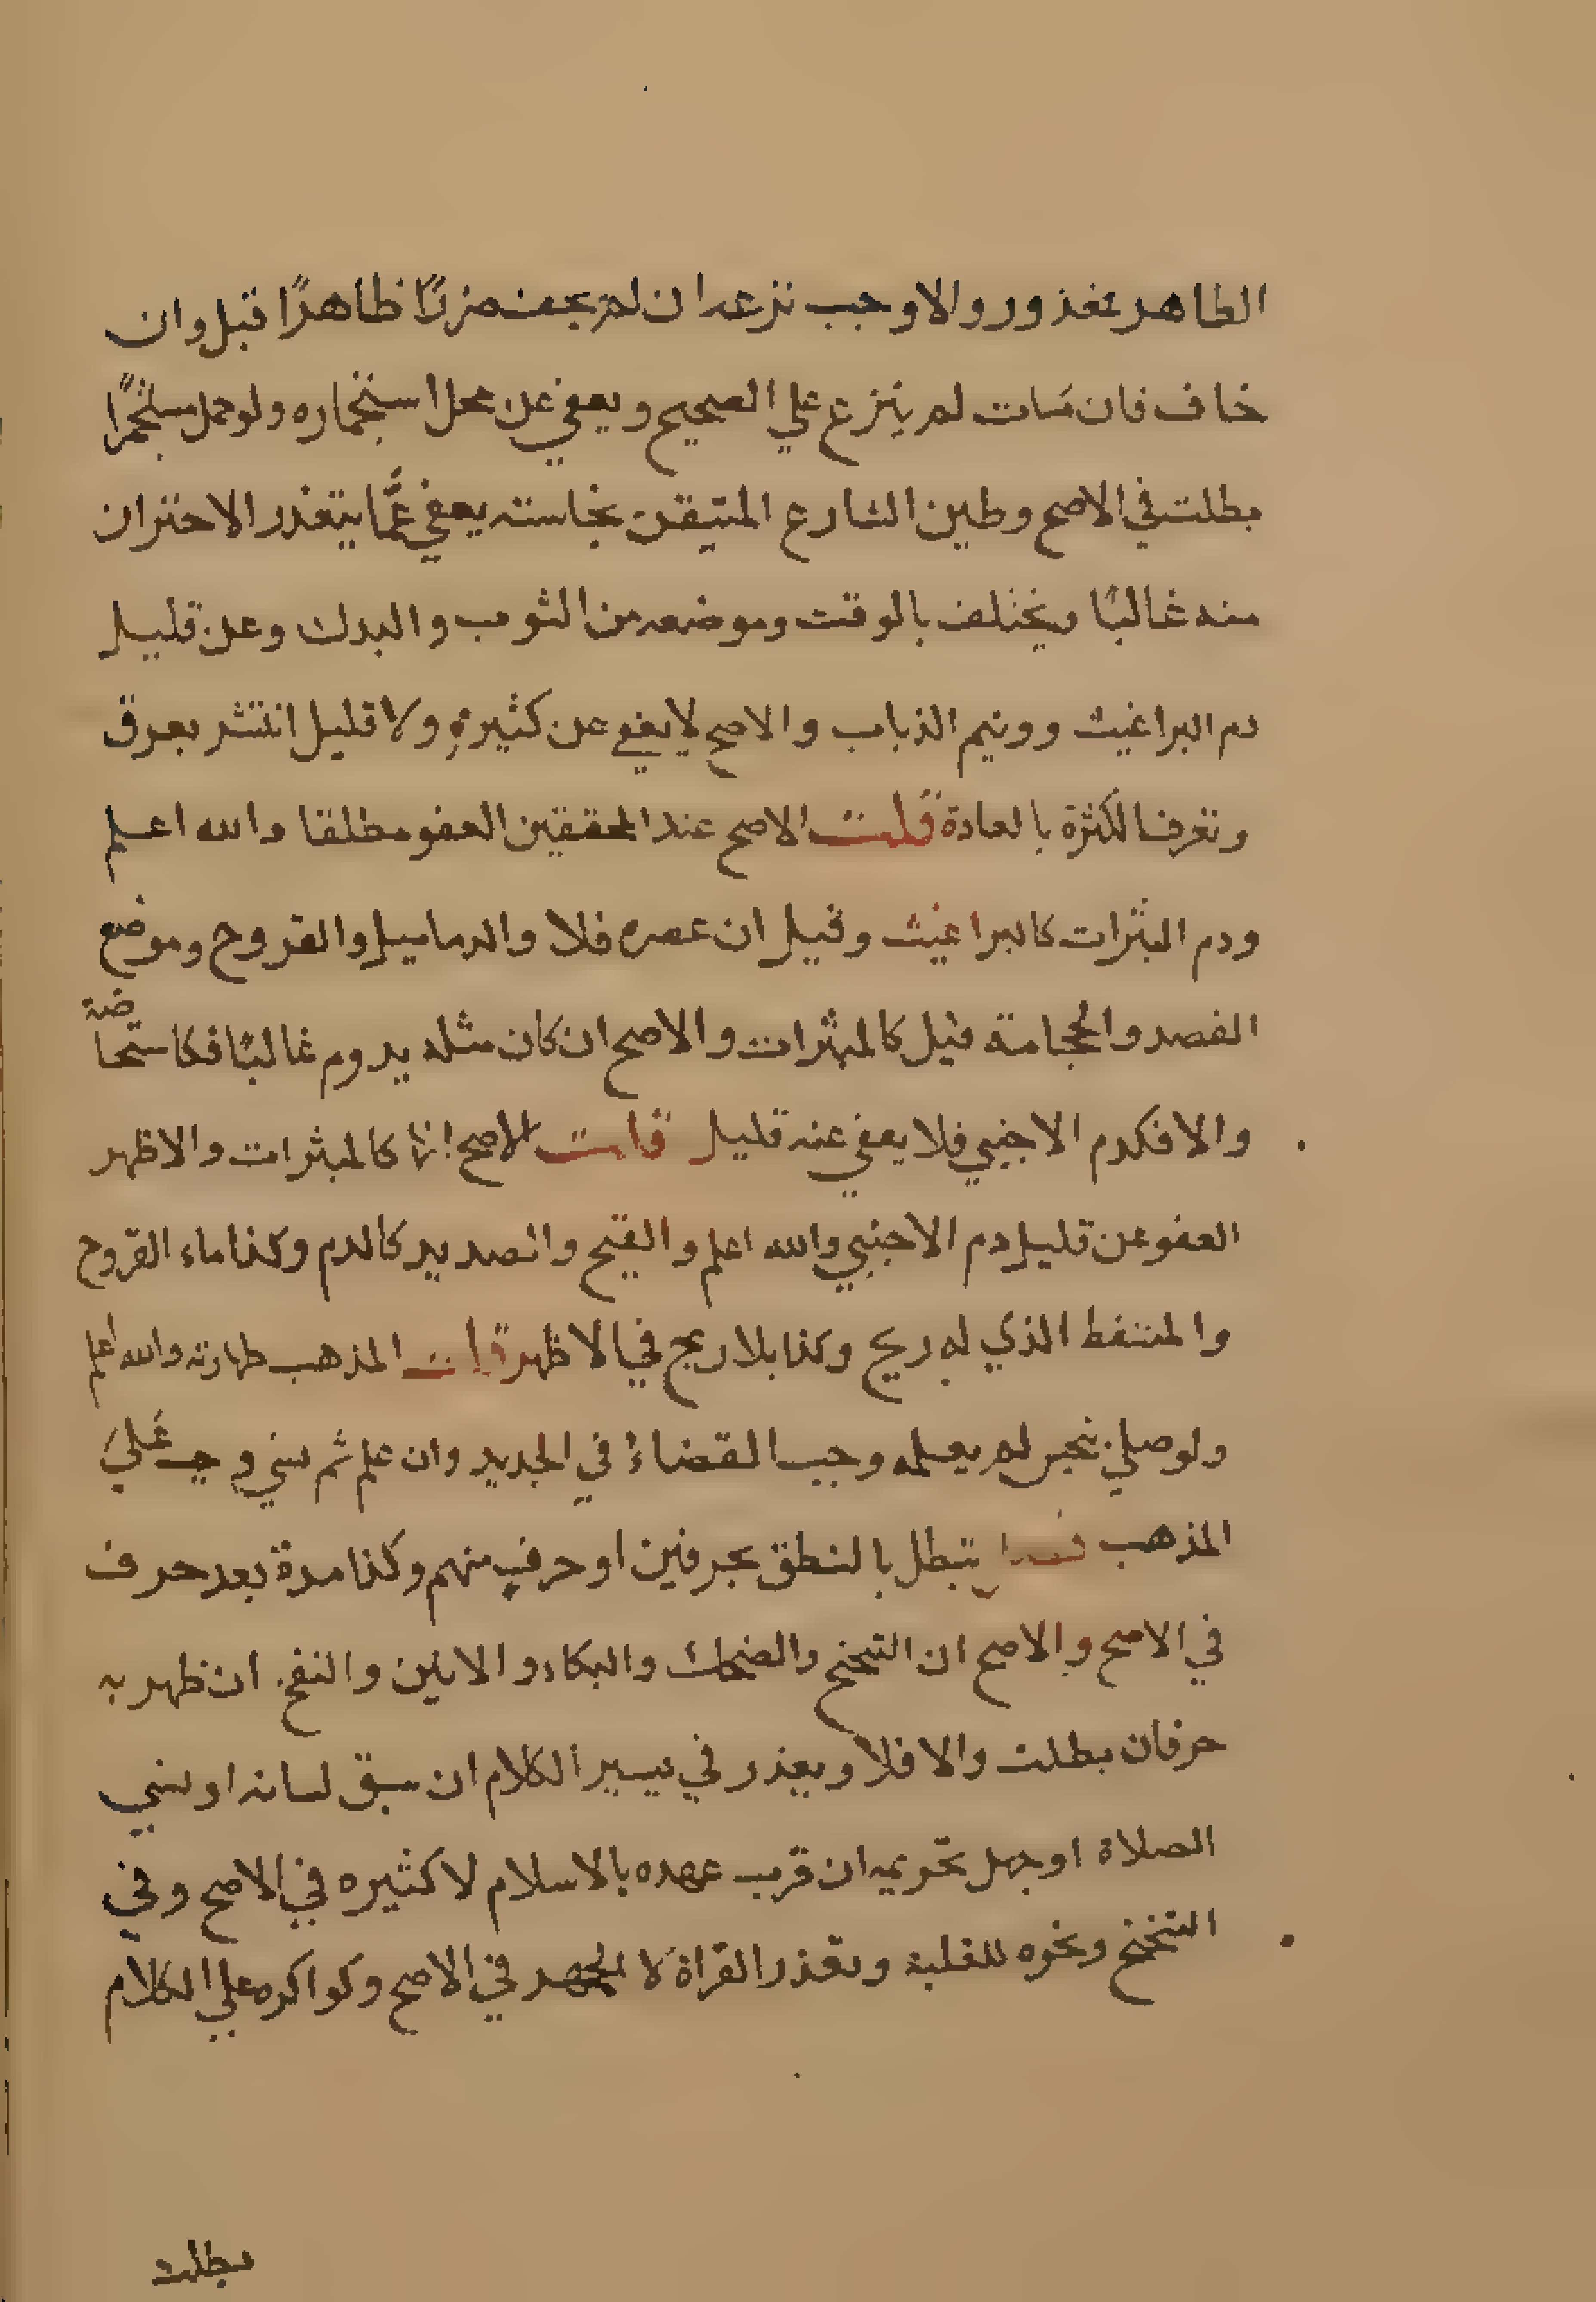 الطاهر فمعذور والا وجب نزعه ان لم يخف ضررًا ظاهرًا قيل وان
خاف فان مَات لم ينزع علي الصحيح ويعفي عن محل استجماره ولو حمل مستجمرًا
بطلت في الاصح وطين الشارع المتيقن نجاسته يعفي عمَّا يتعذر الاحتراز
منه غالبًا ويختلف بالوقت وموضعه من الثوب والبدن وعن قليل
دم البراغيث وونيم الذباب والاصح لا يعفي عن كثيره ولا قليل انتشر بعرق
وتعرف الكثرة بالعادة قلت الاصح عند المحققين العفو مطلقا والله اعلم
ودم البثرات كالبراغيث وقيل ان عصره فلا والدماميل والقروح وموضع
الفصد والحجامة قيل كالبثرات والاصح ان كان مثله يدوم غالبًا فكاستحاضة
والا فكدم الاجنبي فلا يعفي عنه قليل قلت الاصح انها كالبثرات والاظهر
العفو عن قليل دم الاجنبي والله اعلم والقيح والصديد كالدم وكذا ماء القروح
والمتنفط الذي له ريح وكذا بلا ريح في الاظهر قلت المذهب طهارته والله اعلم
ولو صلي بنجس لم يعلمه وجب القضاء في الجديد وان علم ثم نسي وجب علي
المذهب فصل تبطل بالنطق بحرفين او حرف مفهم وكذا مدة بعد حرف
في الاصح والاصح ان التنحنح والضحك والبكاء والانين والنفخ ان ظهر به
حرفان بطلت والا فلا ويعذر في يسير الكلام ان سبق لسانه او نسي
الصلاة او جهل تحريمه ان قرب عهده بالاسلام لا كثيره في الاصح وفي
التنحنح ونحوه للغلبة وتعذر القراة لا الجهر في الاصح ولو اكره علي الكلام
بطلت